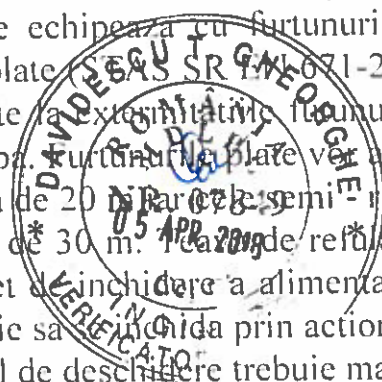 e echipează cu furtunuri
plate (STAS SR EN 671-2
e la extermitățile furtunu
pa. Furtunurile plate vor a
de 20 m iar cele semi - r
de 30 m. Țeava de refula
et de închidere a alimenta
ie să închidă prin action
l de deschidere trebuie ma
DAVIDESCU T. GHEORGHE
ROMÂNIA
NR. 078
05 APR. 2018
VERIFICATOR